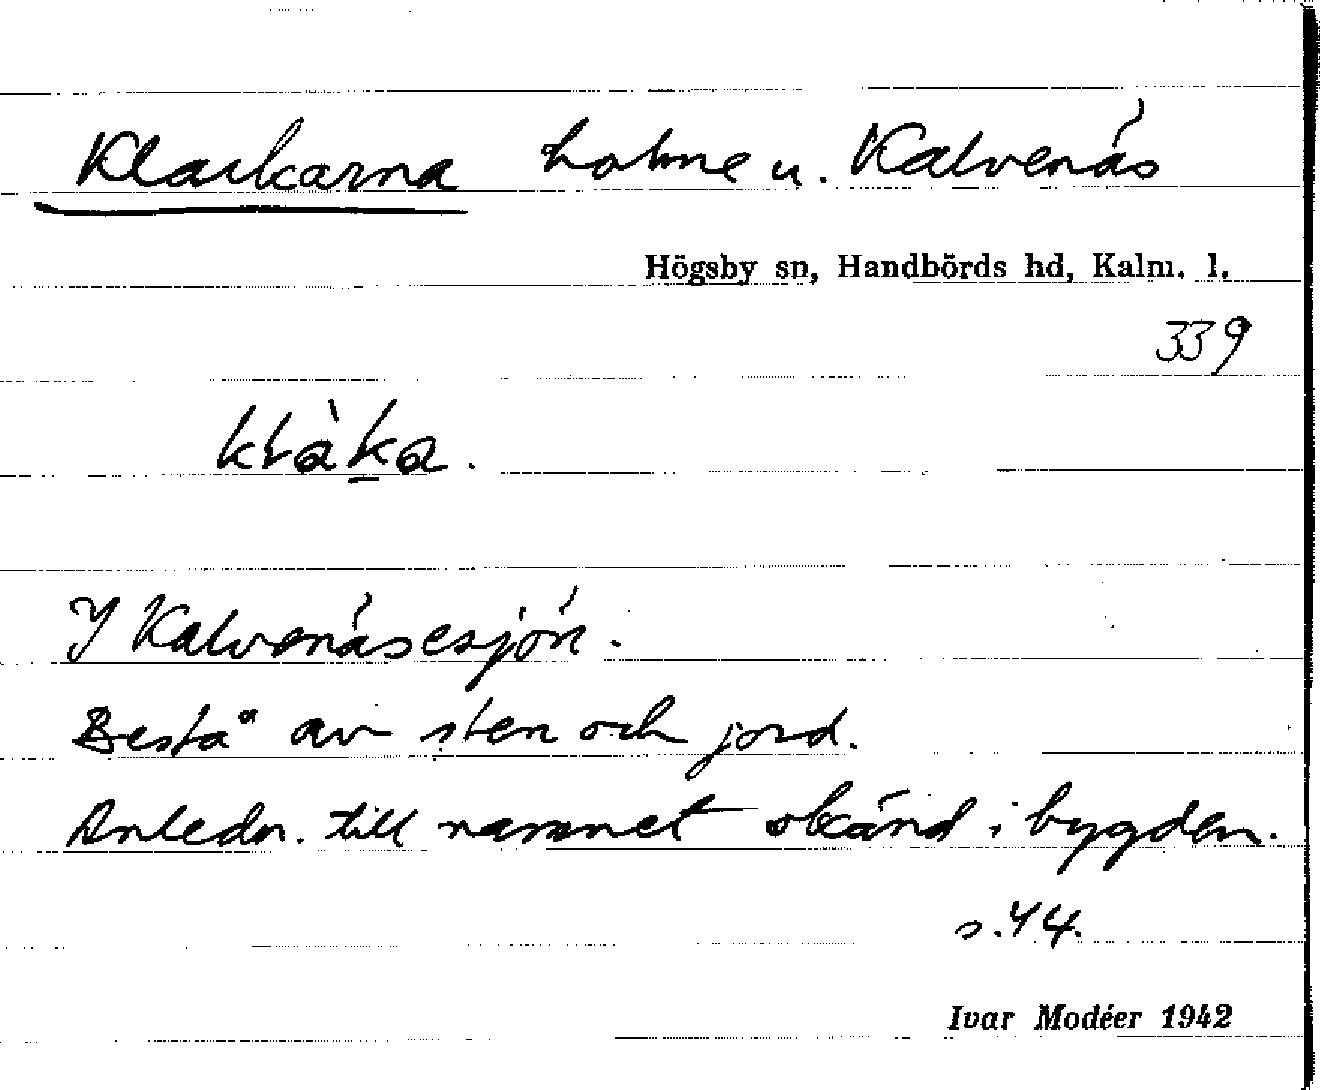 Klackarna holme u. Kalvenäs
Högsby sn, Handbörds hd, Kalm. l.
339
klàk̲a.
I Kalvenäsesjön.
Bestå av sten och jord.
Anledn. till namnet okänd i bygden.
s. 44.
Ivar Modéer 1942